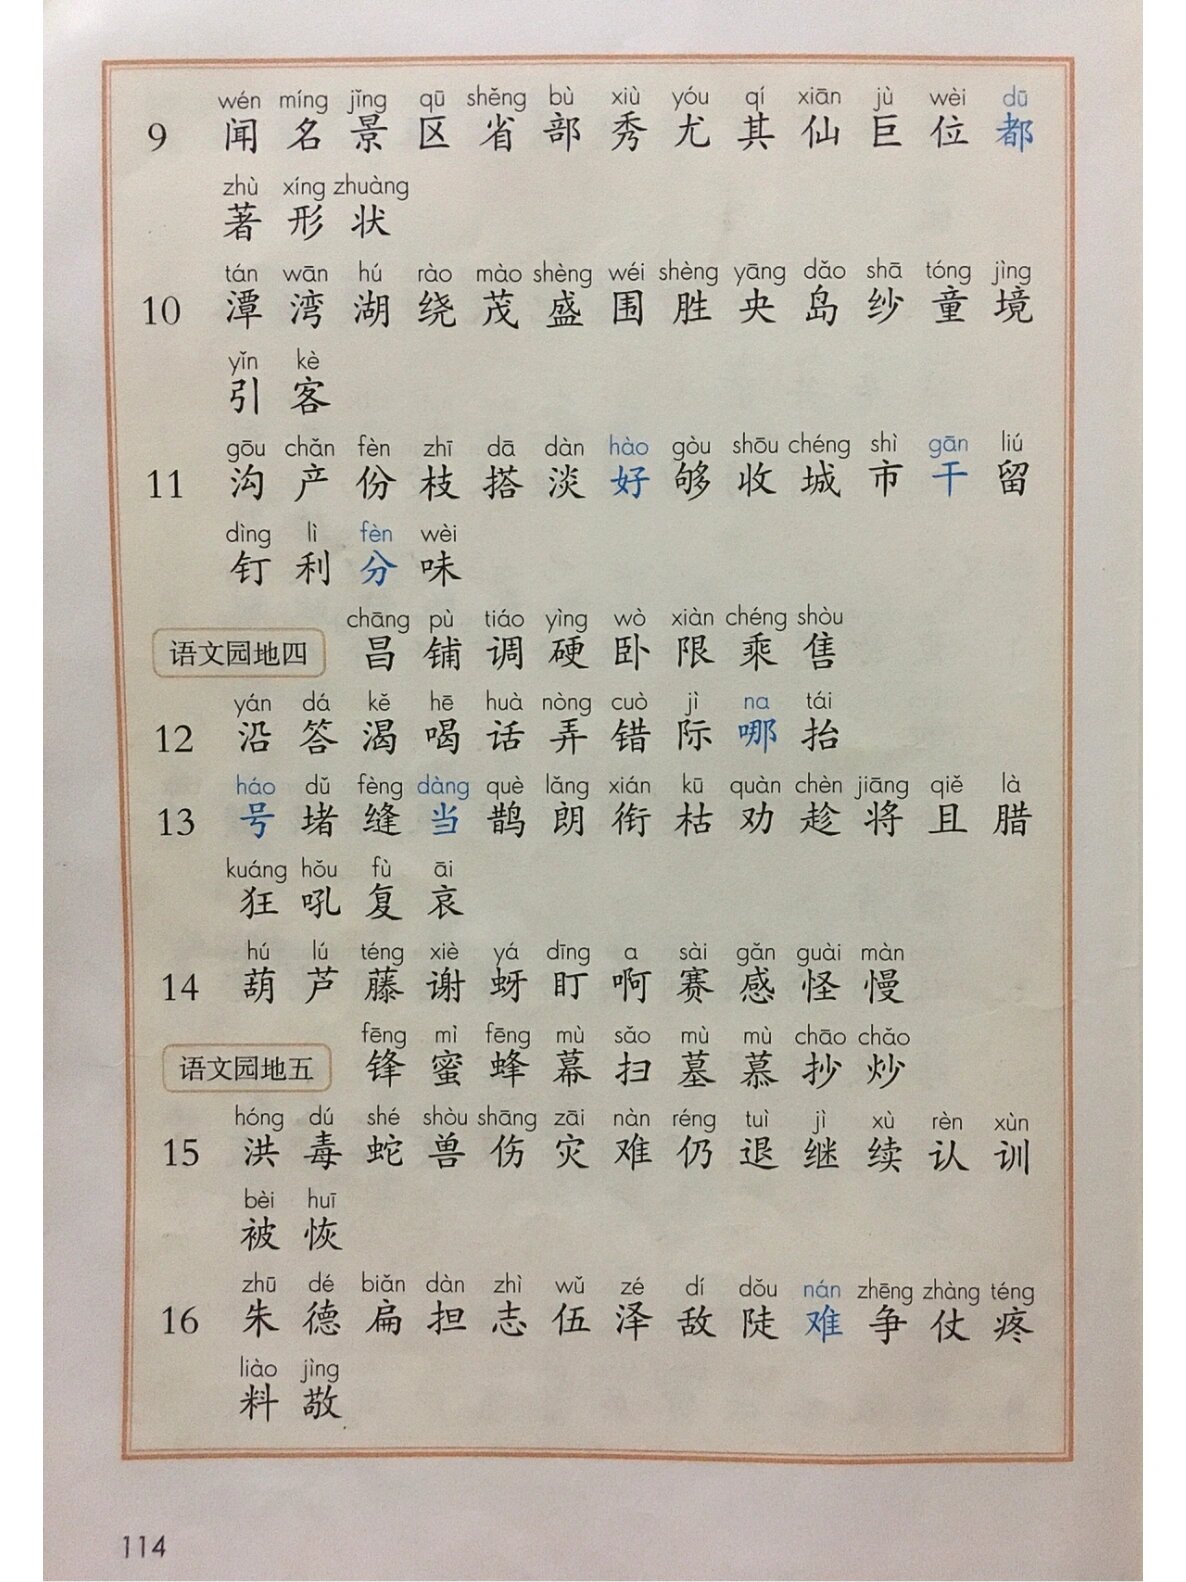 wén míng jǐng qū shěng bù xiù yóu qí xiān jù wèi dū
9 闻 名 景 区 省 部 秀 尤 其 仙 巨 位 都
zhù xíng zhuàng
著 形 状
tán wān hú rào mào shèng wéi shèng yāng dǎo shā tóng jìng
10 潭 湾 湖 绕 茂 盛 围 胜 央 岛 纱 童 境
yǐn kè
引 客
gōu chǎn fèn zhī dā dàn hào gòu shōu chéng shì gān liú
11 沟 产 份 枝 搭 淡 好 够 收 城 市 干 留
dìng lì fèn wèi
钉 利 分 味
chāng pù tiáo yìng wò xiàn chéng shòu
语文园地四 昌 铺 调 硬 卧 限 乘 售
yán dá kě hē huà nòng cuò jì na tái
12 沿 答 渴 喝 话 弄 错 际 哪 抬
háo dǔ fèng dàng què lǎng xián kū quàn chèn jiāng qiě là
13 号 堵 缝 当 鹊 朗 衔 枯 劝 趁 将 且 腊
kuáng hǒu fù āi
狂 吼 复 哀
hú lú téng xiè yá dīng a sài gǎn guài màn
14 葫 芦 藤 谢 蚜 盯 啊 赛 感 怪 慢
fēng mì fēng mù sǎo mù mù chāo chǎo
语文园地五 锋 蜜 蜂 幕 扫 墓 慕 抄 炒
hóng dú shé shòu shāng zāi nàn réng tuì jì xù rèn xùn
15 洪 毒 蛇 兽 伤 灾 难 仍 退 继 续 认 训
bèi huī
被 恢
zhū dé biǎn dàn zhì wǔ zé dí dǒu nán zhēng zhàng téng
16 朱 德 扁 担 志 伍 泽 敌 陡 难 争 仗 疼
liào jìng
料 敬
114